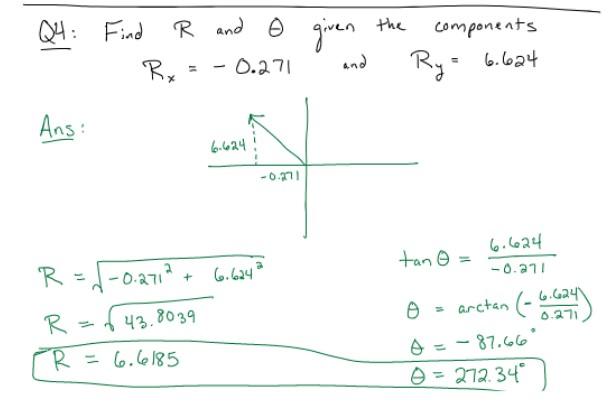 Q4: Find R and θ given the components
Rₓ = - 0.271 and Rᵧ = 6.624
Ans:
6.624
-0.271
R = √(-0.271² + 6.624²)
R = √43.8039
R = 6.6185
tan θ = 6.624 / -0.271
θ = arctan (- 6.624 / 0.271)
θ = - 87.66°
θ = 272.34°